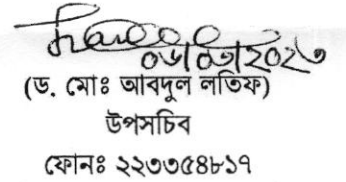 ০৬/০৩/২০২৩
(ড. মোঃ আবদুল লতিফ)
উপসচিব
ফোনঃ ২২৩৩৫৪৮১৭